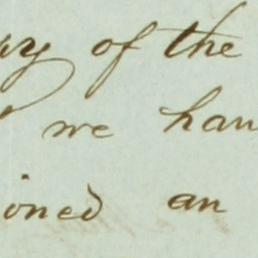 ay of the
we hav
ioned an